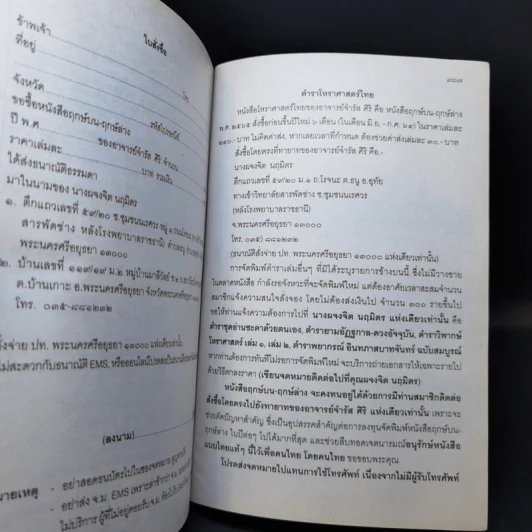 ใบสั่งซื้อ
ข้าพเจ้า
ที่อยู่
จังหวัด โทร.
ขอซื้อหนังสือฤกษ์บน-ฤกษ์ล่าง รหัสไปรษณีย์
ปี พ.ศ. ของอาจารย์จำรัส ศิริ จำนวน
ราคาเล่มละ บาท รวมเงิน
ได้ส่งธนาณัติธรรมดา
มาในนามของ นางผจงจิต นฤมิตร
๑. ตึกแถวเลขที่ ๕๙/๒๐ ช.ชุมชนนเรศวร หมู่ ๑
สารพัดช่าง หลังโรงพยาบาลราชธานี)
พระนครศรีอยุธยา ๑๓๐๐๐
๒. บ้านเลขที่ ๑๑๗/๑๙ ม.๒ หมู่บ้านมาธิวัสถ์
ต.บ้านเกาะ อ.พระนครศรีอยุธยา จังหวัดพระนครศรีอยุธยา
โทร. ๐๓๕-๘๘๑๒๓๒
สั่งจ่าย ปท. พระนครศรีอยุธยา ๑๓๐๐๐ แห่งเดียวเท่านั้น
ไม่สะดวกรับธนาณัติ EMS, หรือออนไลน์
(ลงนาม)
หมายเหตุ - อย่าสอดธนบัตรไปในซองจดหมาย
- อย่าส่ง จ.ม. EMS เพราะล่าช้ากว่า
ตำราโหราศาสตร์ไทย
หนังสือโหราศาสตร์ไทยของอาจารย์จำรัส ศิริ คือ หนังสือฤกษ์บน-ฤกษ์ล่าง
พ.ศ. ๒๕๖๕ สั่งซื้อก่อนขึ้นปีใหม่ ๖ เดือน (ในเดือน มิ.ย.-ก.ค. ๖๔) ในราคาเล่มละ
๒๔๐.- บาท ไม่คิดค่าส่ง, หากเลยเวลาที่กำหนด ต้องช่วยค่าส่งเล่มละ ๓๐.- บาท
สั่งซื้อโดยตรงที่ทายาทของอาจารย์จำรัส ศิริ คือ.-
นางผจงจิต นฤมิตร
ตึกแถวเลขที่ ๕๙/๒๐ ม.๑ ถ.โรจนะ ต.ธนู อ.อุทัย
ทางเข้าวิทยาลัยสารพัดช่าง ซ.ชุมชนนเรศวร
(หลังโรงพยาบาลราชธานี)
จ.พระนครศรีอยุธยา ๑๓๐๐๐
โทร. ๐๓๕) ๘๘๑๒๓๒
(ธนาณัติสั่งจ่าย ปท. พระนครศรีอยุธยา ๑๓๐๐๐ แห่งเดียวเท่านั้น)
การจัดพิมพ์ตำราเล่มอื่นๆ ที่มิได้ระบุรายการข้างบนนี้ ซึ่งไม่มีวางขาย
ในตลาดหนังสือ กำลังรอจังหวะที่จะจัดพิมพ์ใหม่ แต่ต้องอาศัยเวลาสะสมจำนวน
สมาชิกแจ้งความสนใจสั่งจอง โดยไม่ต้องส่งเงินไป จำนวน ๓๐๐ รายขึ้นไป
ขอให้ท่านแจ้งความต้องการไปที่ นางผจงจิต นฤมิตร แห่งเดียวเท่านั้น คือ
ตำราชุดอ่านชะตาด้วยตนเอง, ตำรายามอัฏฐกาล-ดวงอัจจุบัน, ตำราวิพากษ์
โหราศาสตร์ เล่ม ๑, เล่ม ๒, ตำราพยากรณ์ อินทภาสบาทจันทร์ ฉบับสมบูรณ์
หากท่านต้องการทันที่ไม่รอการจัดพิมพ์ใหม่ จะบริการถ่ายเอกสารให้เฉพาะรายไป
ด้วยวิธีลดลงราคา (เขียนจดหมายติดต่อไปที่คุณผจงจิต นฤมิตร)
หนังสือฤกษ์บน-ฤกษ์ล่าง จะคงทนอยู่ได้ด้วยการมีท่านสมาชิกติดต่อ
สั่งซื้อโดยตรงไปยังทายาทของอาจารย์จำรัส ศิริ แห่งเดียวเท่านั้น เพราะจะ
ช่วยตัดปัญหาสำคัญ ซึ่งเป็นอุปสรรคสำคัญต่อการลงทุนจัดพิมพ์หนังสือฤกษ์บน-
ฤกษ์ล่าง ในปีต่อๆ ไปได้มากที่สุด และช่วยสืบทอดเจตนารมณ์อนุรักษ์หนังสือ
แบบไทยแท้ๆ นี้ไว้เพื่อคนไทย โดยคนไทย ขอขอบพระคุณ
โปรดส่งจดหมายไปแทนการใช้โทรศัพท์ เนื่องจากไม่มีผู้รับโทรศัพท์